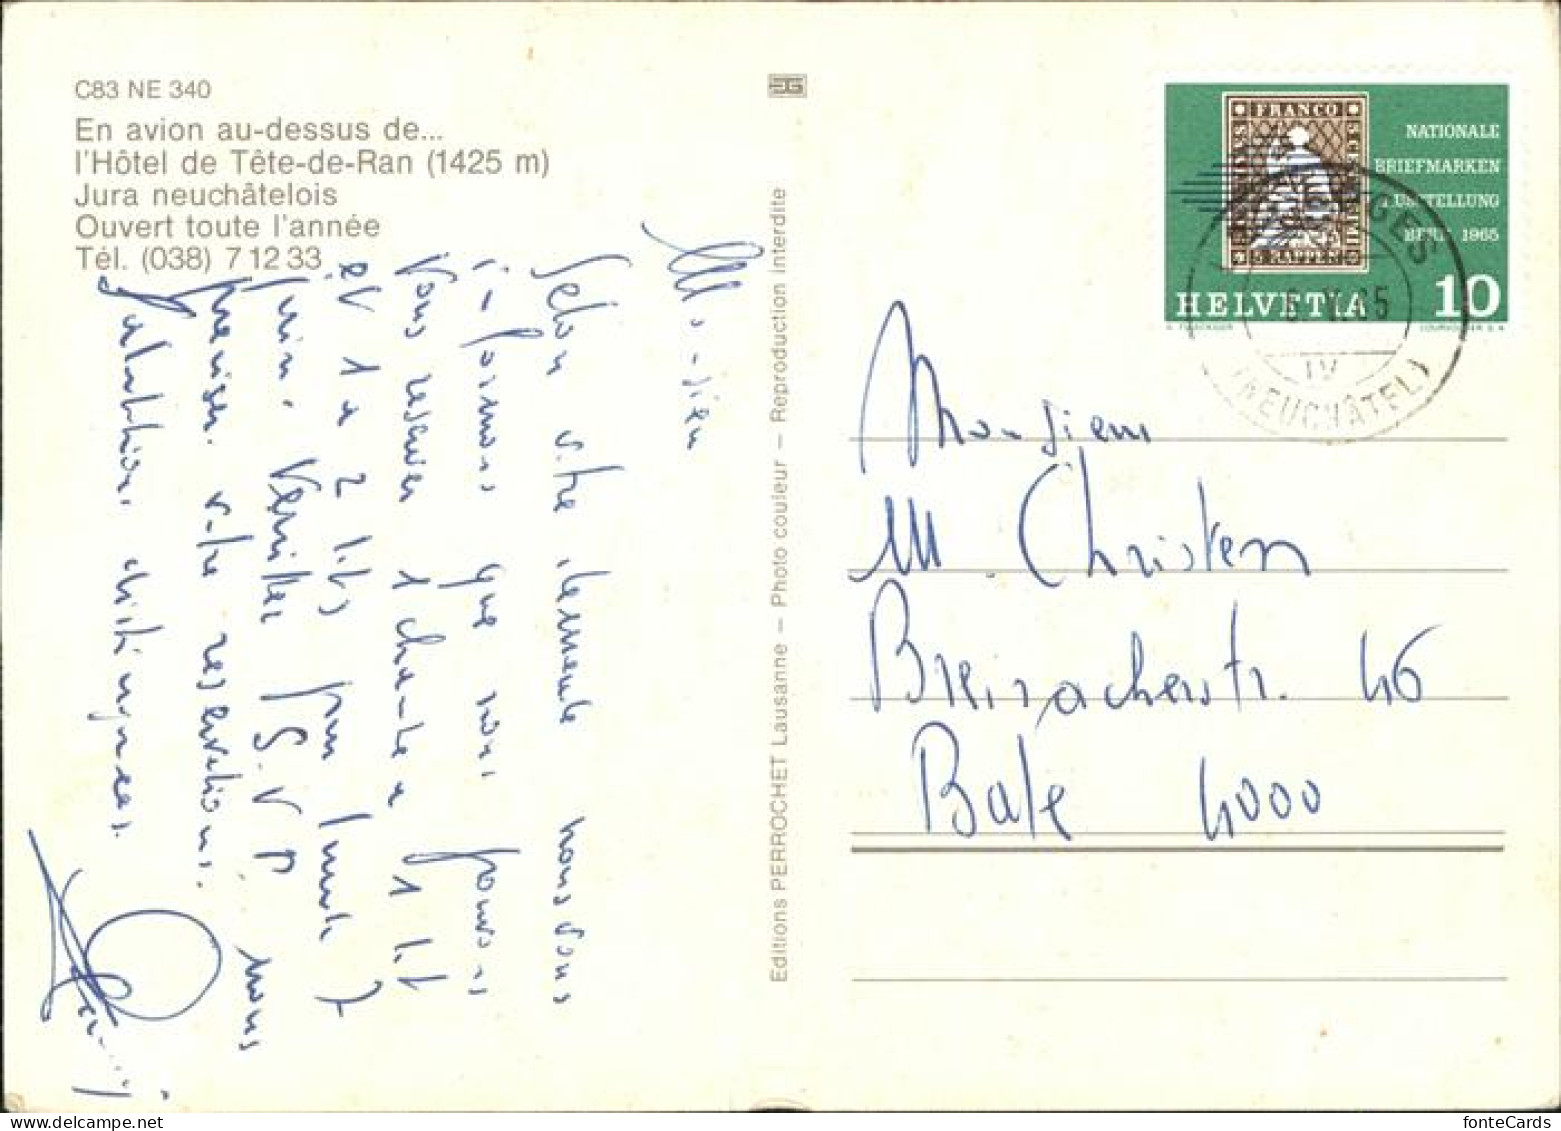 C83 NE 340
En avion au-dessus de...
l'Hôtel de Tête-de-Ran (1425 m)
Jura neuchâtelois
Ouvert toute l'année
Tél. (038) 7 12 33
Monsieur
Selon votre demande nous vous
informons que nous pouvons
vous reserver 1 chambre a 1 lit
et 1 a 2 lits pour lundi 7
juin. Veuillez S.V.P. nous
preciser votre reservations.
Salutations distinguées.
Editions PERROCHET Lausanne – Photo couleur – Reproduction interdite
FRANCO
5 RAPPEN
NATIONALE
BRIEFMARKEN
AUSSTELLUNG
BERN 1965
HELVETIA 10
COURVOISIER S.A.
(NEUCHÂTEL)
Monsieur
M. Christen
Breisacherstr. 46
Bale 4000
fonteCards